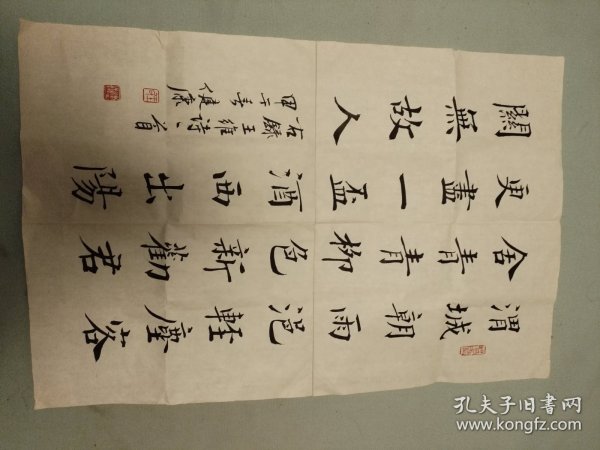 渭城朝雨浥輕塵客
舍青青柳色新勸君
更盡一盃酒西出陽
關無故人
右錄王維詩一首
甲午春健康
孔夫子旧书网
www.kongfz.com